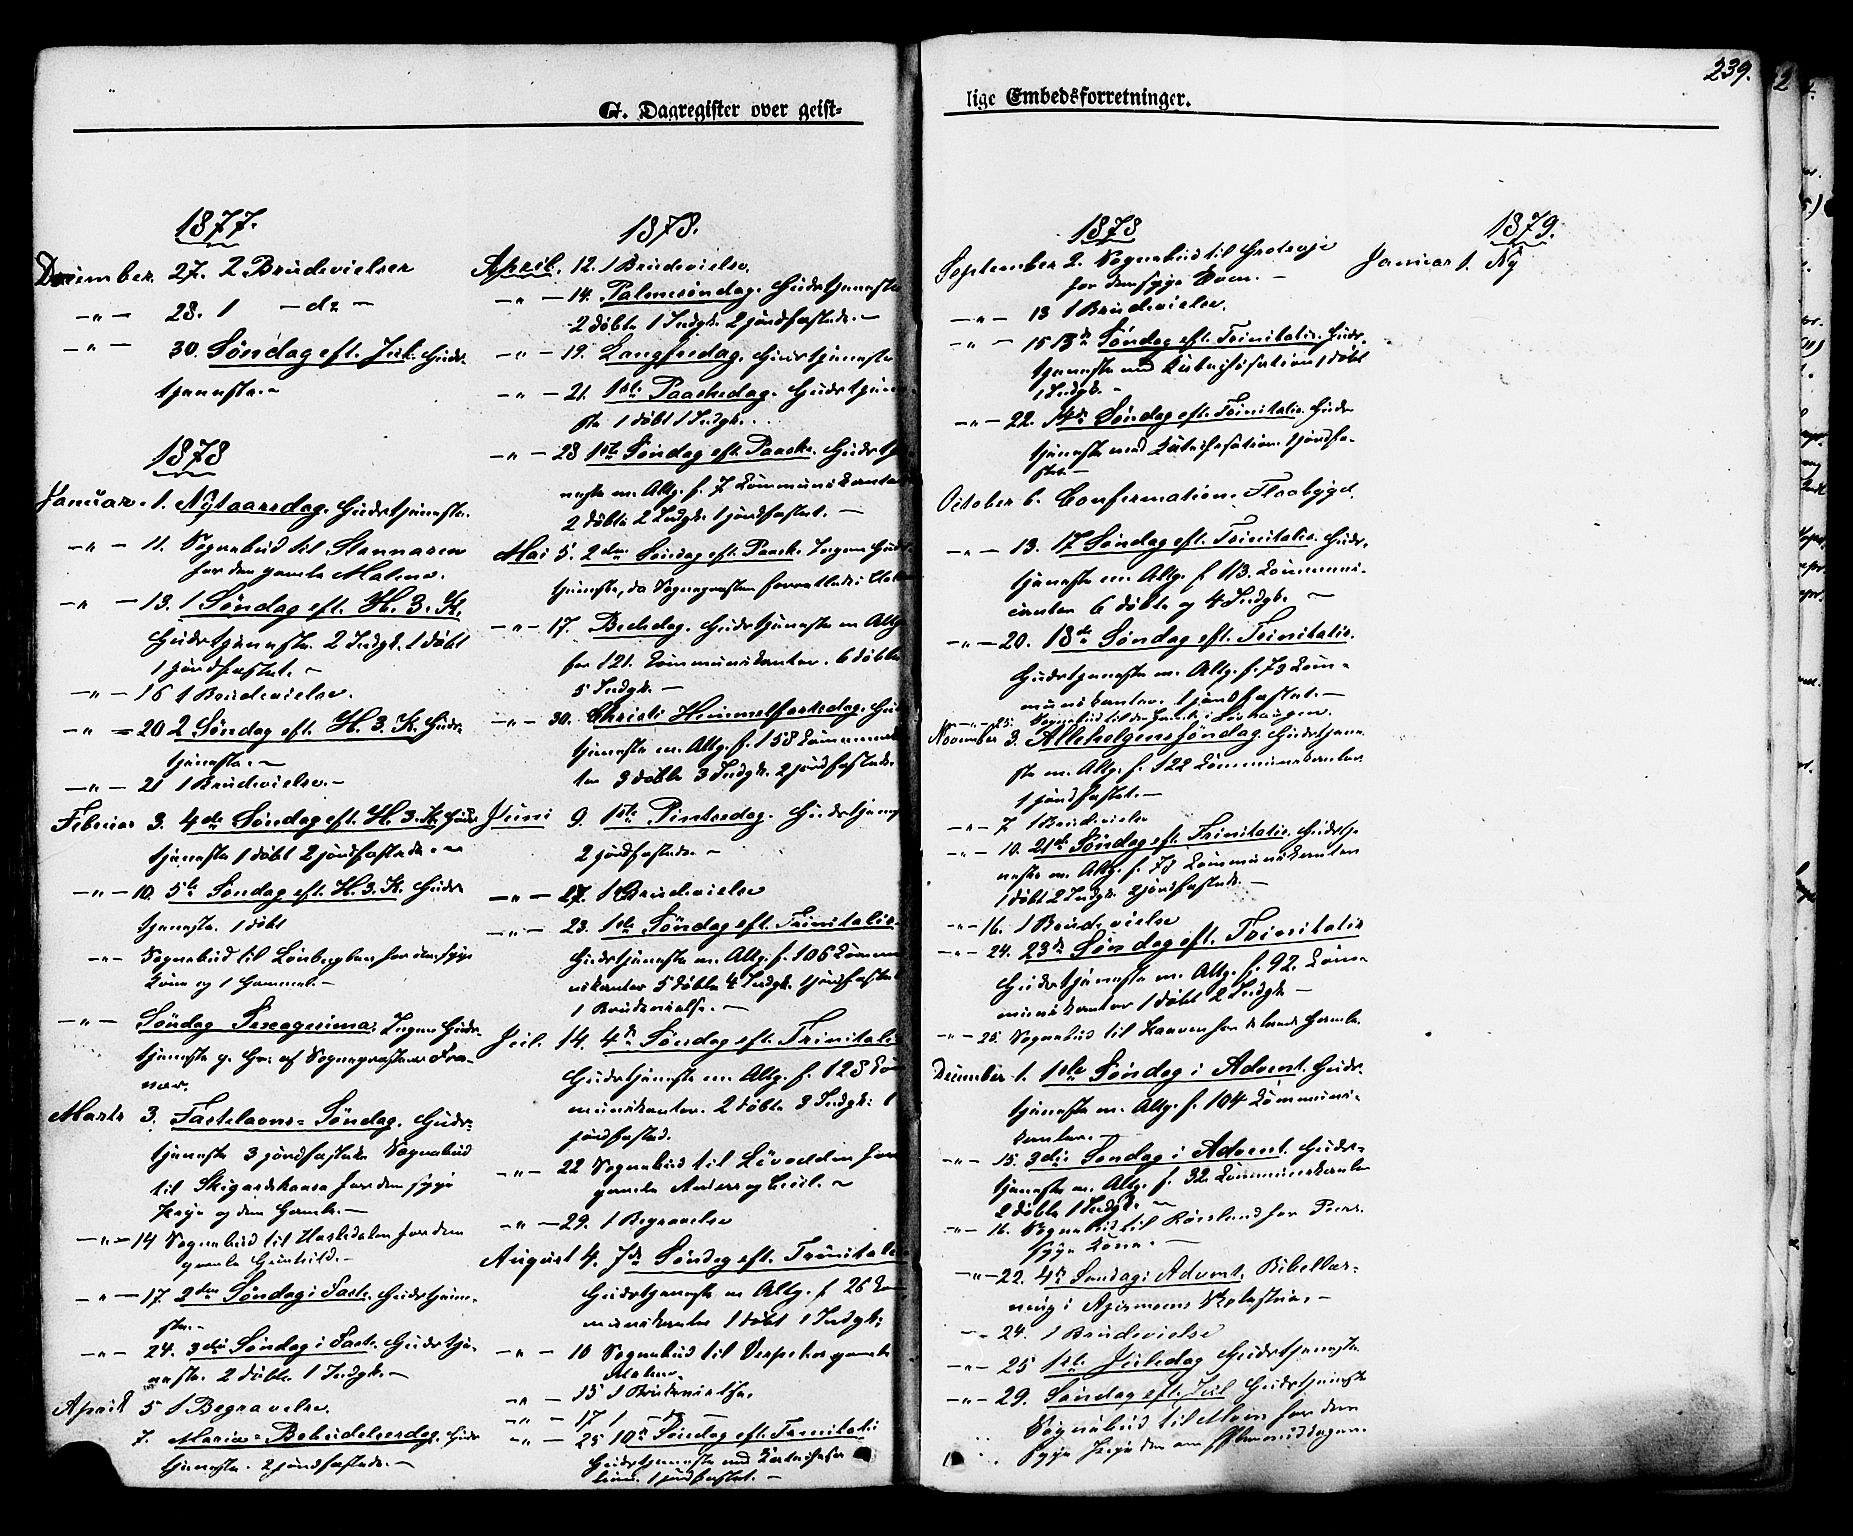 G. Dagregister over geist-
1877.
December 27. 2 Brudevielser
-"- 28. 1 - do -
-"- 30. Søndag eft. Jul. Guds-
tjeneste.-
1878
Januar 1. Nytaarsdag. Gudstjeneste.
-"- 11. Sognebud til
for den gamle Malene.
-"- 13. 1 Søndag eft. H. 3. K.
Gudstjeneste. 2 Indgk. 1 døbt
1 jordfæstet.-
-"- 16 1 Brudevielse.
-"- 20 2 Søndag eft. H. 3. K. Guds-
tjeneste.-
-"- 21 1 Brudevielse.-
Februar 3. 4de Søndag eft. H. 3. K. Guds-
tjeneste 1 døbt 2 jordfæstede.-
-"- 10. 5te Søndag eft. H. 3. K. Guds-
tjeneste. 1 døbt
-"- Sognebud til for den syge
Kone og 1 Gammel.-
-"- Søndag Sexagesima. Ingen Guds-
tjeneste p. Gr. af Sognepræstens Fra-
vær.
Marts 3. Fastelavns-Søndag. Guds-
tjeneste 3 jordfæstede Sognebud
til for den syge
og den Gamle.-
-"- 14 Sognebud til for den
gamle Gunhild.-
-"- 17. 2den Søndag i Faste. Gudstjene-
ste.-
-"- 24. 3die Søndag i Faste. Gudstje-
neste. 2 døbte 1 Indgk.-
April 5 1 Begravelse.
7. Mariæ-Bebudelsesdag. Guds-
tjeneste. 2 jordfæstede.-
1878.
April. 12. 1 Brudevielse.
-"- 14. Palmesøndag. Gudstjeneste
2 døbte 1 Indgk. 2 jordfæstede.-
-"- 19. Langfredag. Gudstjeneste
-"- 21. 1ste Paaskedag. Gudstjene-
ste 1 døbt 1 Indgk.
-"- 28 1ste Søndag eft. Paaske. Gudstje-
neste m. Altg. f. 7 Kommunikanter
2 døbte 2 Indgk. 1 jordfæstet.-
Mai 5. 2den Søndag eft. Paaske. Ingen Guds-
tjeneste, da Sognepræsten forrettede i
-"- 17. Bededag. Gudstjeneste m Altg
for 121. Kommunikanter. 6 døbte
5 Indgk.-
-"- 30. Christi Himmelfartsdag. Guds
tjeneste m. Altg. f. 158 Kommunikan
ter 3 døbte 3 Indgk. 2 jordfæstede.
Juni 9. 1ste Pintsedag. Gudstjeneste
2 jordfæstede.-
-"- 27. 1 Brudevielse
-"- 23. 1ste Søndag eft. Trinitatis.
Gudstjeneste m. Altg. f. 106 Kommu
nikanter 5 døbte 4 Indgk. 1 jordfæstet
1 Brudevielse.-
Jul. 14. 4de Søndag eft. Trinitatis
Gudstjeneste m Altg. f. 128 Kom
munikanter. 2 døbte 3 Indgk: 1
jordfæsted.
-"- 22 Sognebud til for
gamle Anders og
-"- 29. 1 Begravelse
August 4. 7de Søndag eft. Trinitatis
Gudstjeneste m Altg. f 26 Kom
munikanter 1 døbt 1 Indgk:
-"- 10 Sognebud til gamle
Malene.
-"- 15 1 Brudevielse.
-"- 17 1 - " -
-"- 25 10de Søndag eft. Trinitatis
Gudstjeneste med Katechisa
tion. 1 jordfæstet.-
lige Embedsforretninger.
239.
1878
September 2. Sognebud til
for den syge
-"- 13 1 Brudevielse.
-"- 15 13de Søndag eft. Trinitatis. Guds-
tjeneste med Katechisation 1 døbt
1 Indgk.-
-"- 22. 14de Søndag eft. Trinitatis. Guds-
tjeneste med Katechisation. 1 jordfæ-
stet.-
October 6. Confirmation. Flaabygd.
-"- 13. 17 Søndag eft. Trinitatis. Guds-
tjeneste m. Altg. f 113. Kommuni-
canter 6 døbte og 4 Indgk.-
-"- 20. 18de Søndag eft. Trinitatis.
Gudstjeneste m. Altg. f. 73 Kom-
munikanter. 1 jordfæstet.-
-"- 25. Sognebud til
November 3. Allehelgenssøndag. Gudstjene-
ste m. Altg. f. 122 Kommunikanter
1 jordfæstet.-
-"- 7 1 Brudevielse
-"- 10. 21de Søndag eft. Trinitatis. Gudstje
neste m. Altg. f. 78 Kommunikanter
1 døbt 2 Indgk. 2 jordfæstede.-
-"- 16. 1 Brudevielse
-"- 24. 23de Søndag eft. Trinitatis
Gudstjeneste m. Altg. f. 92. Kom-
munikanter 1 døbt 2 Indgk-
-"- 25. Sognebud til for Gamle.
December 1. 1ste Søndag i Advent. Guds-
tjeneste m. Altg. f. 104 Kommuni-
kanter.-
-"- 15. 3die Søndag i Advent. Guds-
tjeneste m. Altg. f. 32 Kommunikanter
2 døbte 1 Indgk.-
-"- 16. Sognebud til for
syge Kone.-
-"- 22. 4de Søndag i Advent. Bibellæs-
ning i
-"- 24. 1 Brudevielse
-"- 25 1ste Juledag Gudstjeneste
-"- 29. Søndag eft. Jul Gudstjeneste
Sognebud til for den
syge
1879.
Januar 1. Ny